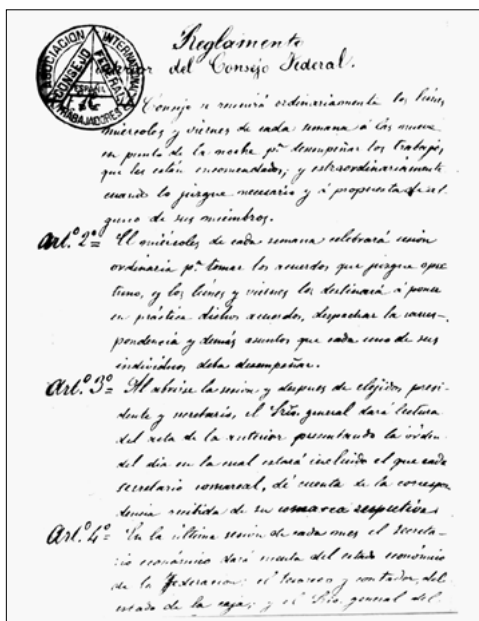 Reglamento
interior del Consejo Federal.
ASOCIACION INTERNACIONAL
TRABAJADORES
CONSEJO FEDERAL
ESPAÑOL
Consejo se reunirá ordinariamente los lúnes,
miércoles y viernes de cada semana á las nueve
en punto de la noche pª desempeñar los trabajos
que les están encomendados; y estraordinariamente
cuando lo juzgue necesario y á propuesta de al-
guno de sus miembros.
Art.º 2º = El miércoles de cada semana celebrará sesion
ordinaria pª tomar los acuerdos que juzgue opor
tuno, y los lúnes y viernes los destinará á poner
en práctica dichos acuerdos, despachar la corres-
pondencia y demás asuntos que cada uno de sus
individuos deba desempeñar.
Art.º 3º = Al abrirse la sesion y despues de elejidos presi-
dente y secretario, el Srio. general dará lectura
del acta de la anterior presentando la órden
del dia en la cual estará incluido el que cada
secretario comarcal, dé cuenta de la correspon
dencia recibida de su comarca respectiva.
Art.º 4º = En la última sesion de cada mes el Secreta-
rio económico dará cuenta del estado económico
de la Federacion; el tesorero y contador, del
estado de la caja; y el Srio. general del